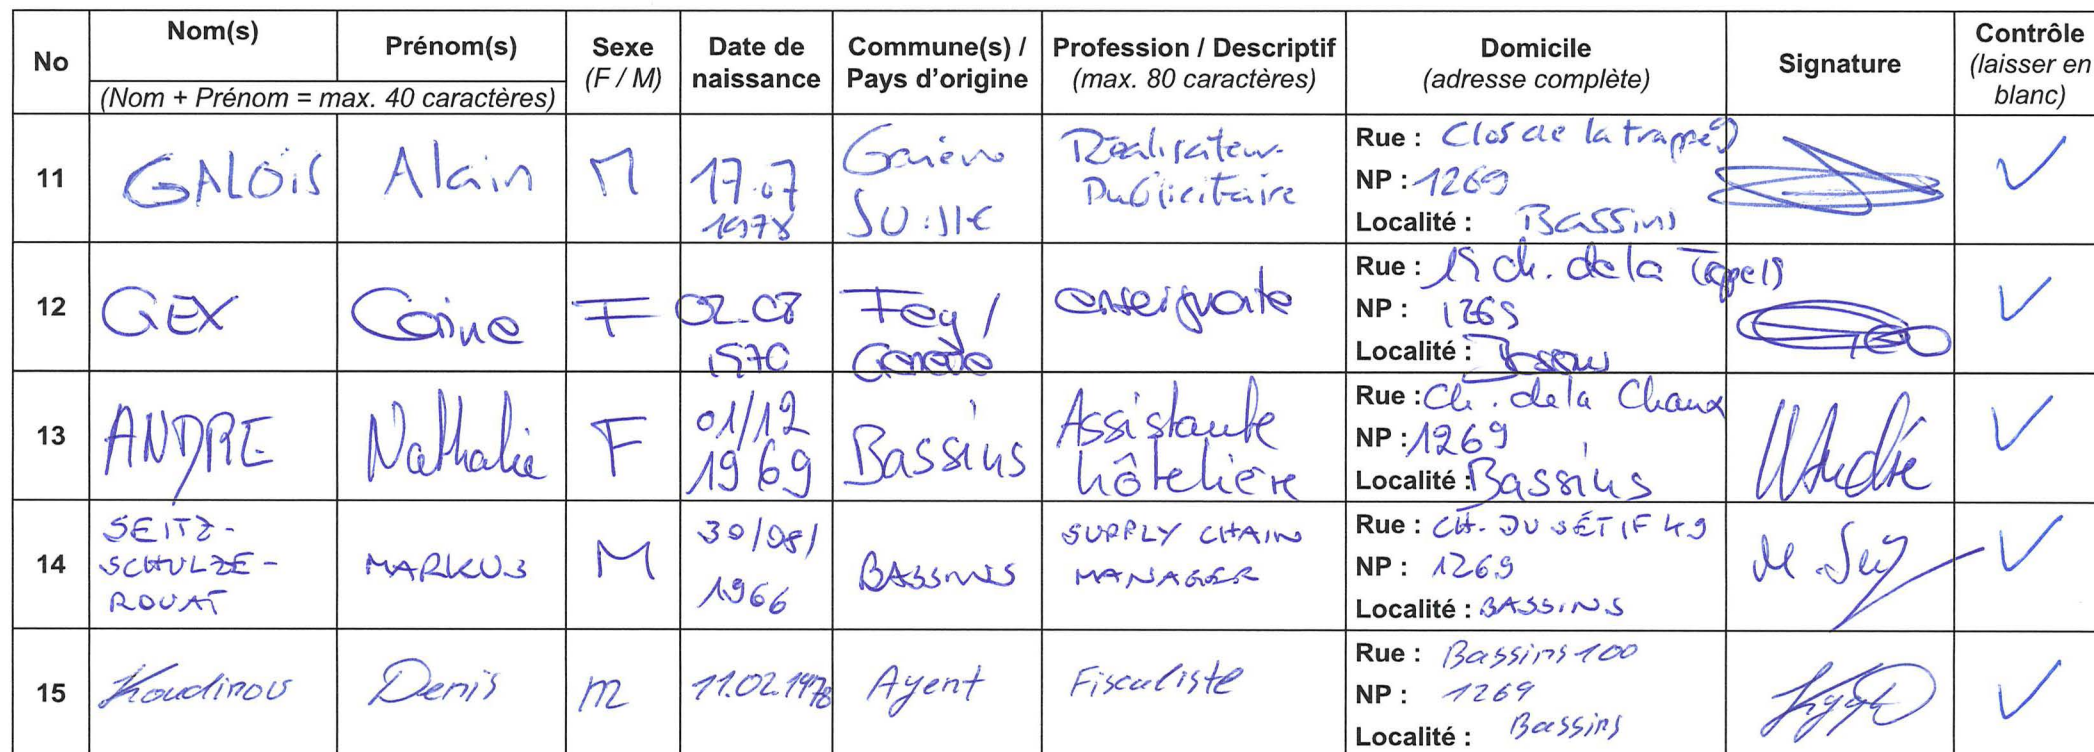 No
Nom(s)
Prénom(s)
(Nom + Prénom = max. 40 caractères)
Sexe
(F / M)
Date de
naissance
Commune(s) /
Pays d'origine
Profession / Descriptif
(max. 80 caractères)
Domicile
(adresse complète)
Signature
Contrôle
(laisser en
blanc)
11
GALOIS
Alain
M
17.07
1978
SUISSE
Réalisateur
Publicitaire
Rue : Clos de la trappe 9
NP : 1269
Localité : Bassins
12
GEX
F
02.08
1970
Fey /
Genève
enseignante
Rue : 15 ch. de la
NP : 1269
Localité : Bassins
13
ANDRE
Nathalie
F
01/12
1969
Bassins
Assistante
hôtelière
Rue : Ch. de la Chaux
NP : 1269
Localité : Bassins
NAndré
14
SEITZ-
SCHULZE-
ROUAT
MARKUS
M
30/08/
1966
BASSINS
SUPPLY CHAIN
MANAGER
Rue : CH. DU SÉTIF 49
NP : 1269
Localité : BASSINS
15
Koudinov
Denis
m
11.02.1978
Ayent
Fiscaliste
Rue : Bassins 100
NP : 1269
Localité : Bassins